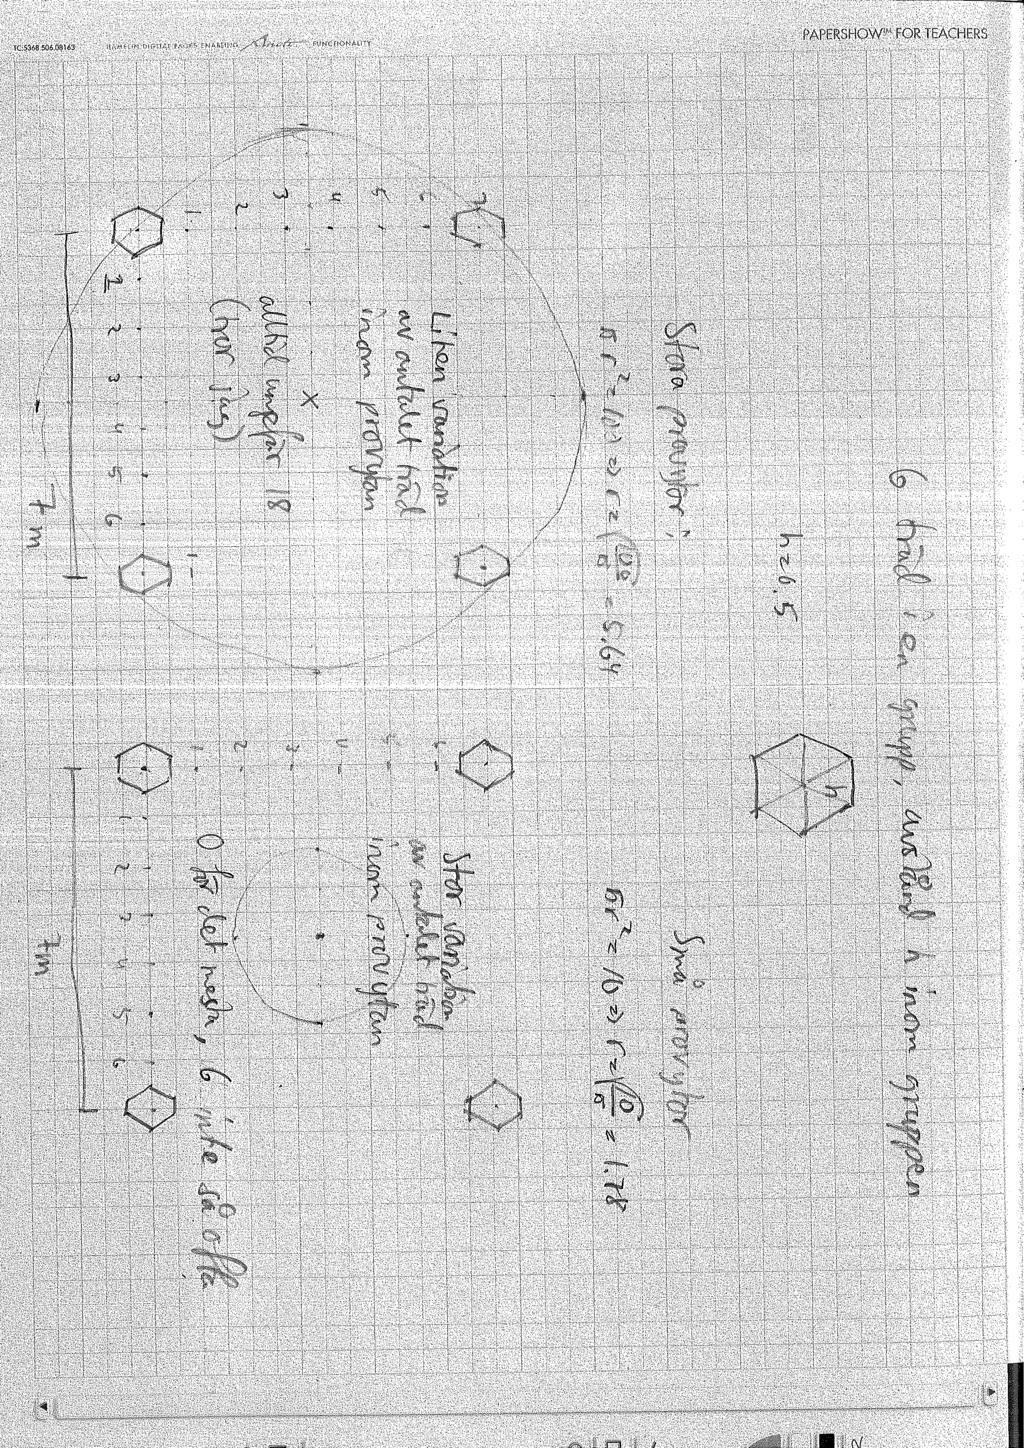 PAPERSHOW™ FOR TEACHERS
1C:5368 506.08163 HAMELIN DIGITAL PAGES ENABLING Anoto FUNCTIONALITY
6 träd i en grupp, avstånd h inom gruppen
h=0.5
h
Stora provytor:
πr²=100 => r=√100/π = 5.64
Små provytor
πr²=10 => r=√10/π = 1.78
Liten variation
av antalet träd
inom provytan
x
alltid ungefär 18
(tror jag)
1 2 3 4 5 6 7
1 2 3 4 5 6
1
7 m
Stor variation
av antalet träd
inom provytan
0 för det mesta, 6 inte så ofta
1 2 3 4 5 6
1 2 3 4 5 6
7m